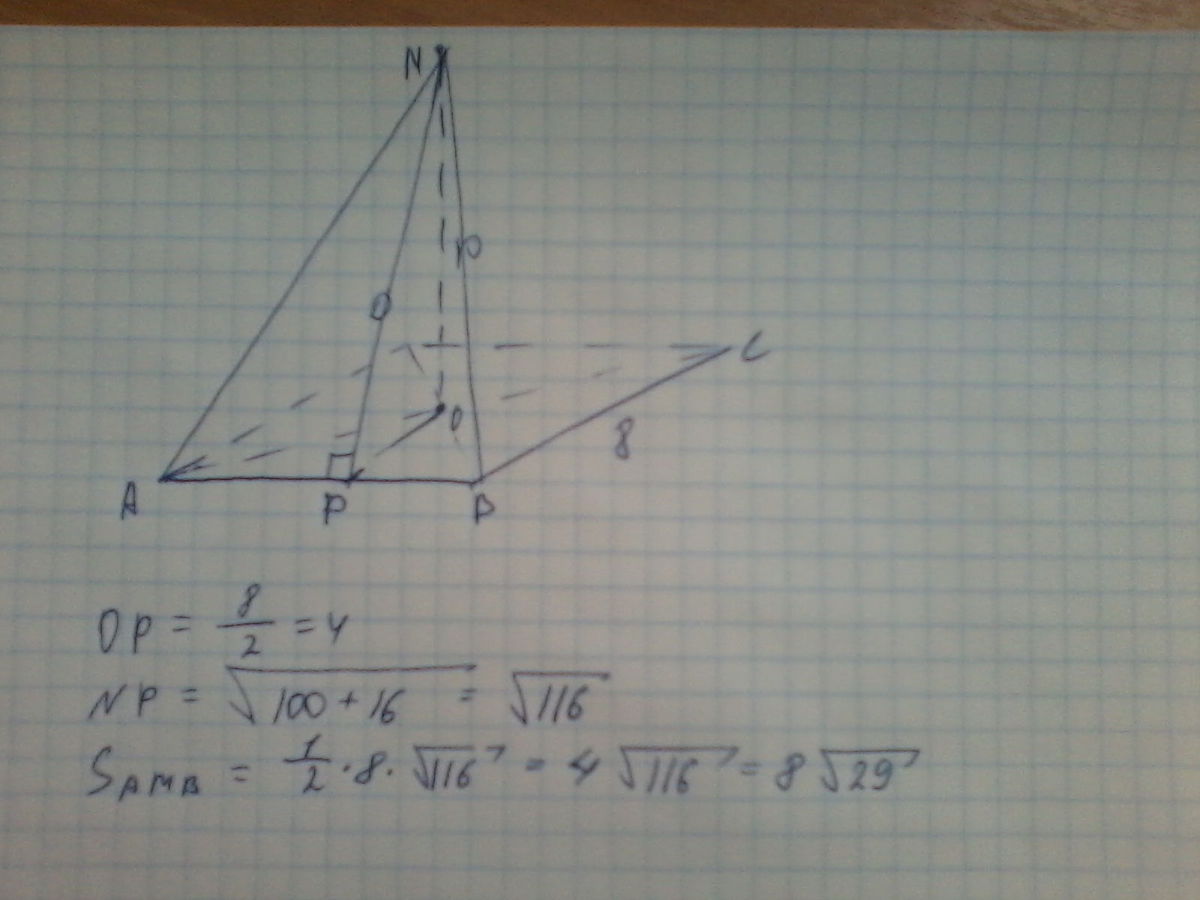 N
10
O
C
8
A
P
B
OP = 8/2 = 4
NP = √100 + 16 = √116
S AMB = 1/2 · 8 · √116 = 4 √116 = 8 √29